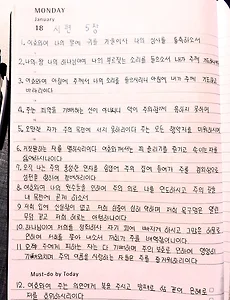 MONDAY
January
18 시편 5편
1. 여호와여 나의 말에 귀를 기울이사 나의 심사를 통촉하소서
2. 나의 왕 나의 하나님이여 나의 부르짖는 소리를 들으소서 내가 주께
3. 여호와여 아침에 주께서 나의 소리를 들으시리니 아침에 내가 주께
바라리이다
4. 주는 죄악을 기뻐하는 신이 아니시니 악이 주와 함께 유하지 못하며
5. 오만한 자가 주의 목전에 서지 못하리이다 주는 모든 행악자를 미워하시며
6. 거짓말하는 자를 멸하시리이다 여호와께서는 피 흘리기를 즐기고 속이는 자를
싫어하시나이다
7. 오직 나는 주의 풍성한 인자를 힘입어 주의 집에 들어가 주를 경외함으로
성전을 향하여 예배하리이다
8. 여호와여 나의 원수들로 인하여 주의 의로 나를 인도하시고 주의 길을
내 목전에 곧게 하소서
9. 저희 입에 신실함이 없고 저희 심중이 심히 악하며 저희 목구멍은 열린
무덤 같고 저희 혀로는 아첨하나이다
10. 하나님이여 저희를 정죄하사 자기 꾀에 빠지게 하시고 그 많은 허물로
인하여 저희를 쫓아 내소서 저희가 주를 배역함이니이다
11. 오직 주에게 피하는 자는 다 기뻐하며 주의 보호로 인하여 영영히
기뻐외치며 주의 이름을 사랑하는 자들은 주를 즐거워하리이다
Must-do by Today
12. 여호와여 주는 의인에게 복을 주시고 방패로 함 같이 은혜로
저를 호위하시리이다